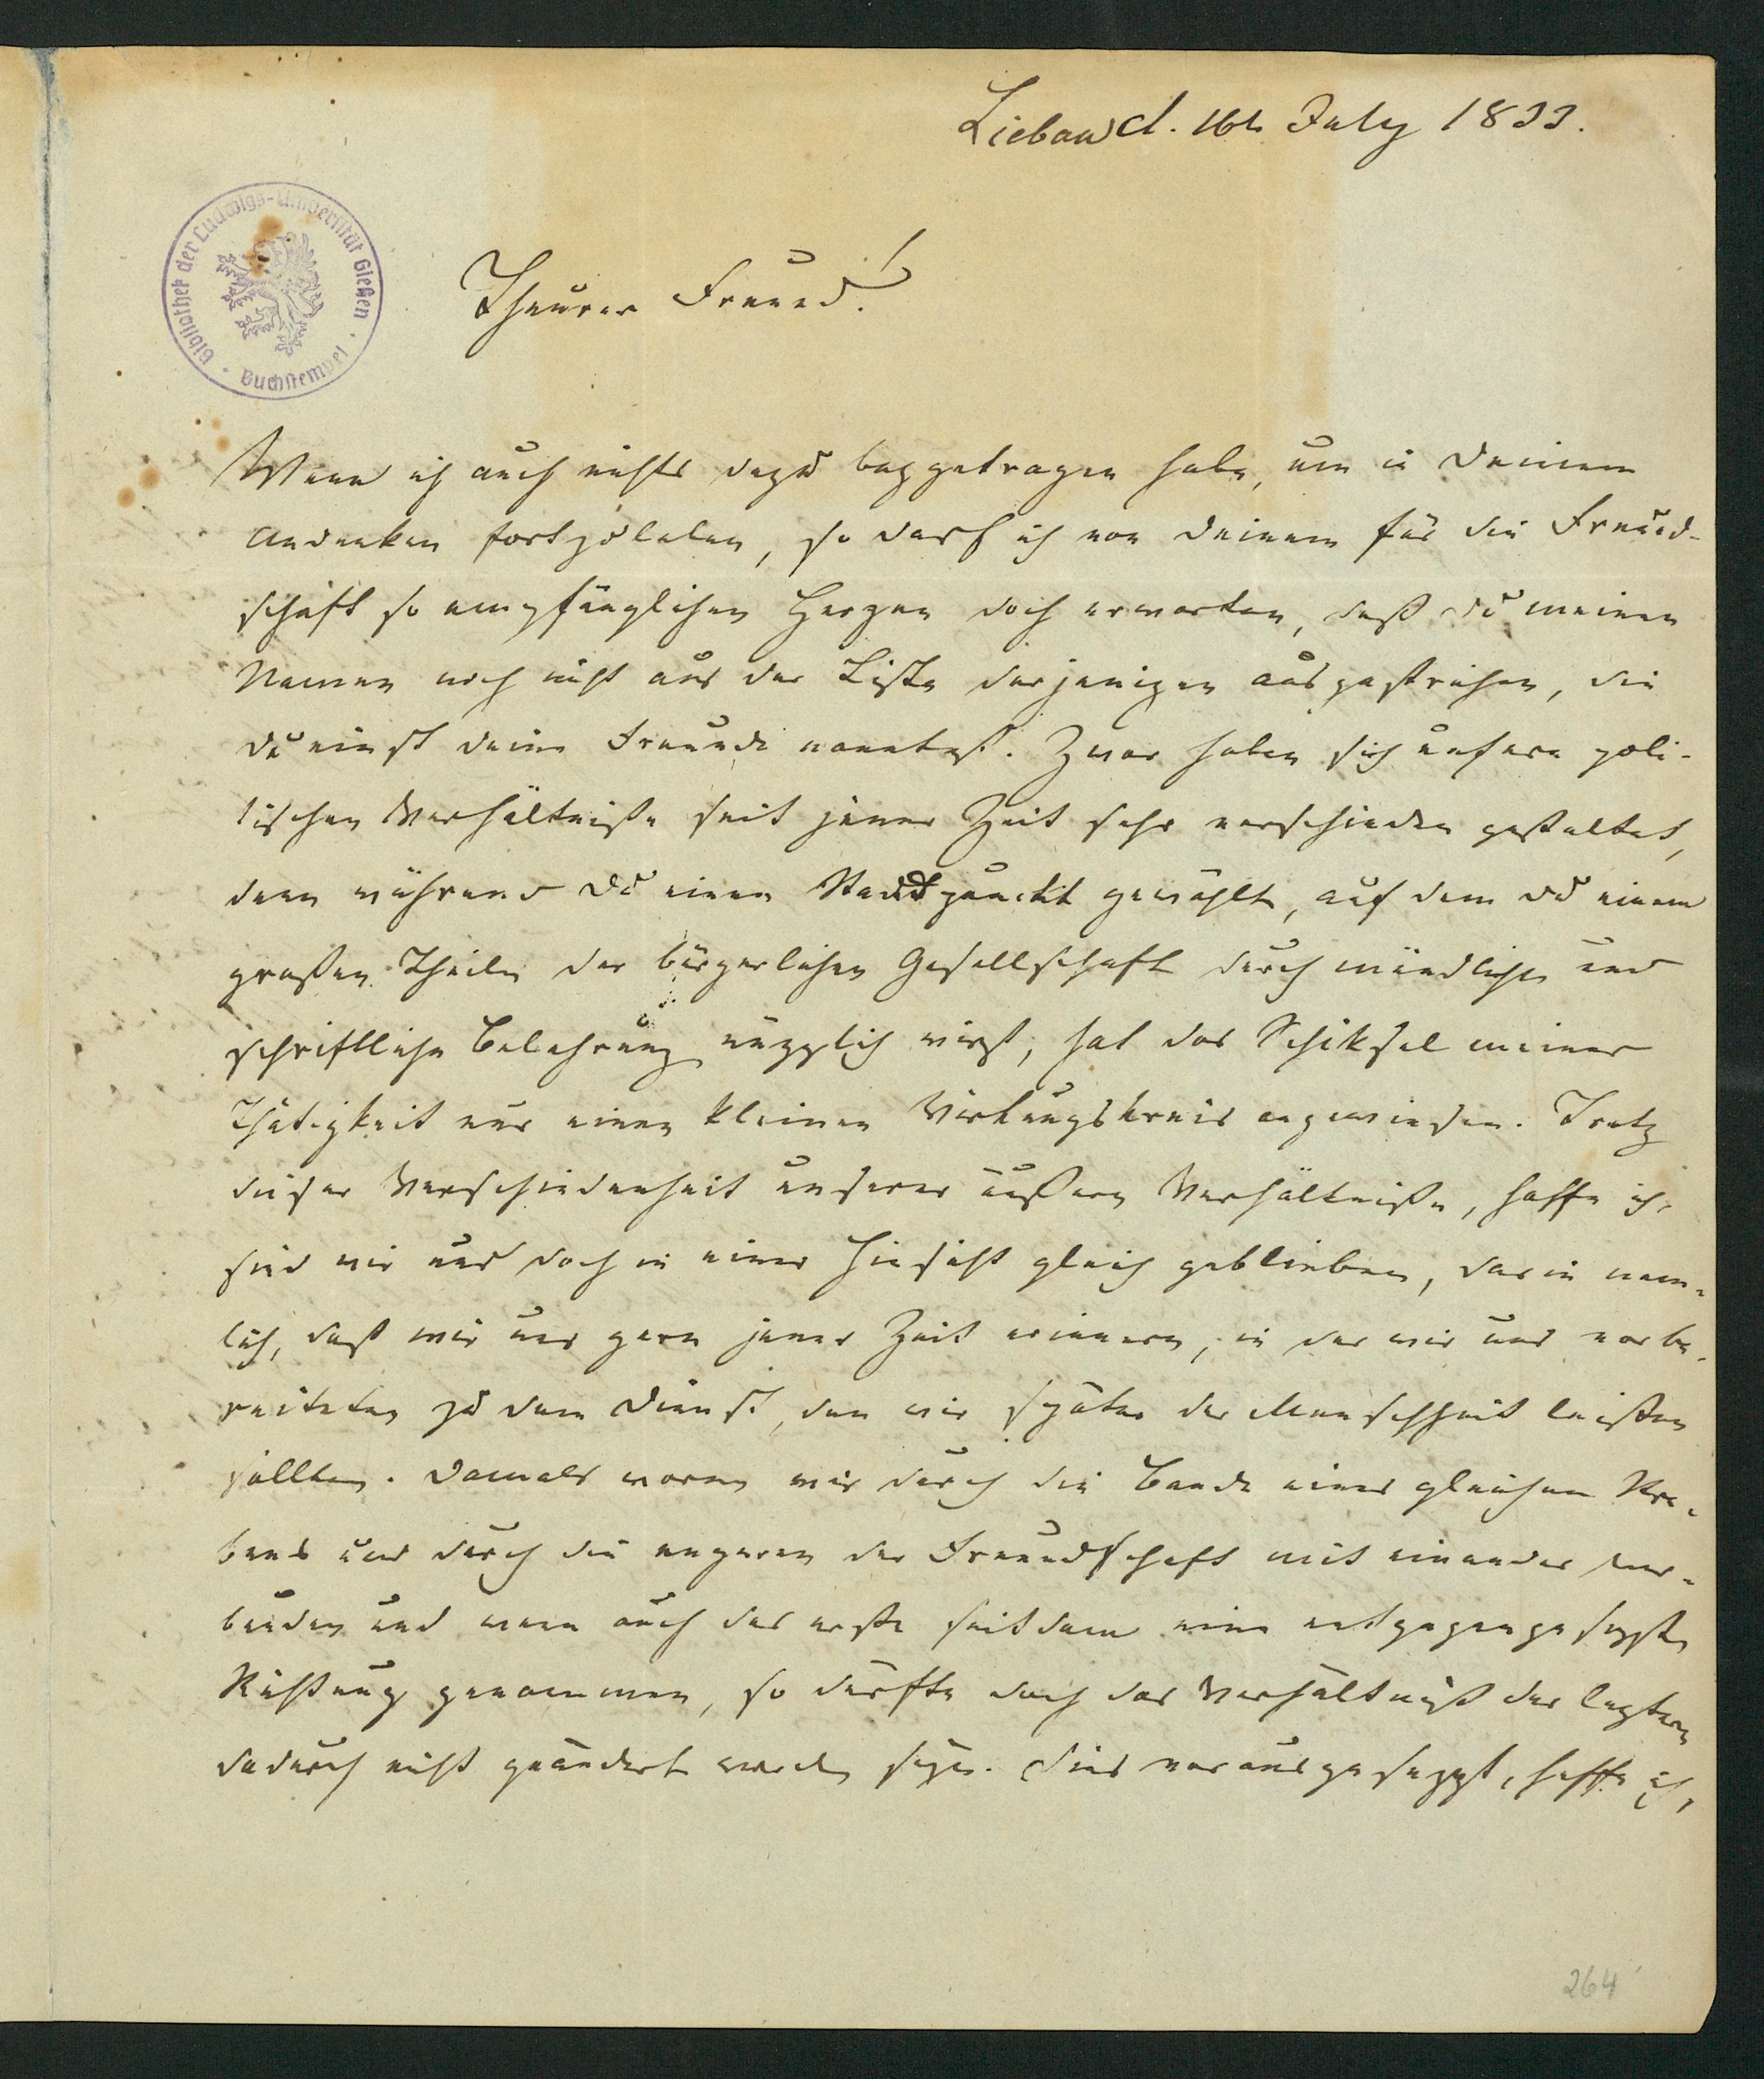 Liebau d. 16t. July 1833.
Bibliothek der Ludwigs-Universität Gießen · Buchstempel ·
Theurer Freund!
Wenn ich auch nichts dazu beygetragen habe, um in Deinem
Andenken fortzuleben, so darf ich von Deinem für die Freund-
schaft so empfänglichen Herzen doch erwarten, daß du meinen
Namen noch nicht aus der Liste derjenigen ausgestrichen, die
du einst deine Freunde nanntest. Zwar haben sich unsere poli-
tischen Verhältniße seit jener Zeit sehr verschieden gestaltet,
denn während Du einen Standpunckt gewählt, auf dem du einem
großen Theile der bürgerlichen Gesellschaft durch mündliche und
schriftliche Belehrung nüzzlich wirst, hat das Schiksal meiner
Thätigkeit nur einen kleinen Wirkungskreis angewiesen. Trotz
dieser Verschiedenheit unserer äußern Verhältniße, hoffe ich,
sind wir uns doch in einer Hinsicht gleich geblieben, darin nem-
lich, daß wir uns gern jener Zeit erinnern, in der wir uns vorbe-
reiteten zu dem Dienst, den wir später der Menschheit leisten
sollten. Damals waren wir durch die Bande eines gleichen Stre-
bens und durch die engeren der Freundschaft mit einander ver-
bunden und wenn auch das erste seitdem eine entgegengesezte
Richtung genommen, so dürfte doch das Verhältniß der leztern
dadurch nicht geändert worden seyn. Dies vorausgesezzt, hoffe ich,
264